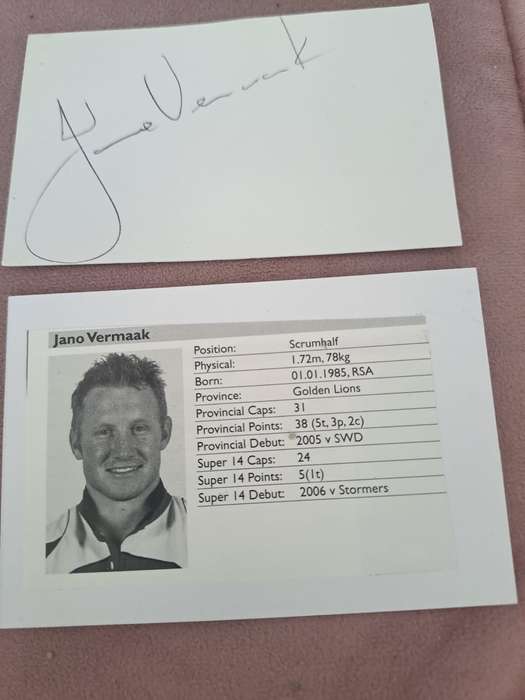 Jano Vermaak
Jano Vermaak
Position: Scrumhalf
Physical: 1.72m, 78kg
Born: 01.01.1985, RSA
Province: Golden Lions
Provincial Caps: 31
Provincial Points: 38 (5t, 3p, 2c)
Provincial Debut: 2005 v SWD
Super 14 Caps: 24
Super 14 Points: 5(1t)
Super 14 Debut: 2006 v Stormers